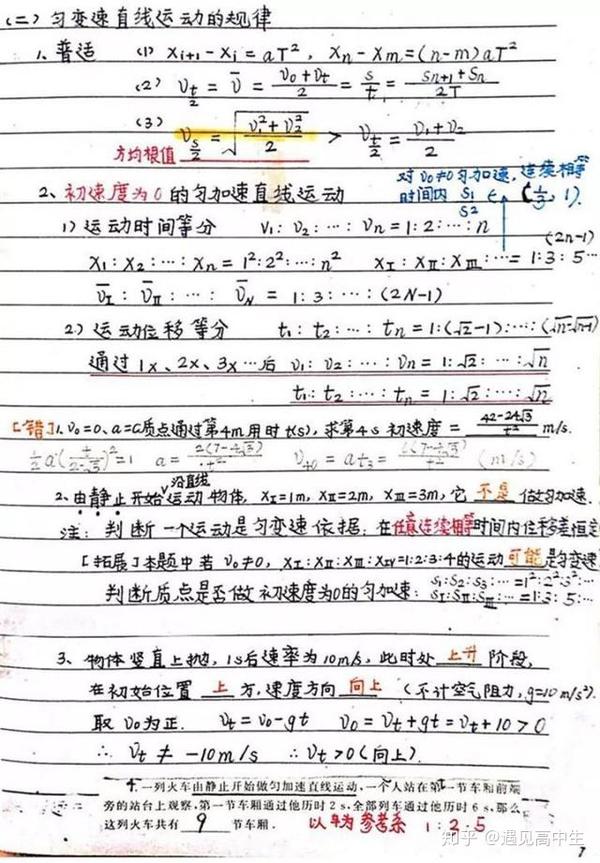 (二) 匀变速直线运动的规律
1、普适 (1) Xi+1-Xi=aT², Xn-Xm=(n-m)aT²
(2) Vt/2 = V̄ = (V0+Vt)/2 = s/t = (Sn+1+Sn)/2T
(3) Vs/2 = √((V1²+V2²)/2) > Vt/2 = (V1+V2)/2
方均根值
对V0≠0匀加速,连续相等
时间内 S1/S2 ∈ (1/3, 1).
2、初速度为0的匀加速直线运动
1) 运动时间等分 V1:V2:…:Vn=1:2:…:n
X1:X2:…:Xn=1²:2²:…:n² XⅠ:XⅡ:XⅢ:…=1:3:5…(2n-1)
V̄Ⅰ:V̄Ⅱ:…:V̄N=1:3:…:(2N-1)
2) 运动位移等分 t1:t2:…:tn=1:(√2-1):…:(√n-√n-1)
通过1X、2X、3X…后 V1:V2:…:Vn=1:√2:…:√n
t1:t2:…:tn=1:√2:…:√n
[错]1.V0=0、a=C质点通过第4m用时t(s),求第4s初速度= (42-24√3)/t² m/s.
½a(t/(2-√3))²=1 a=2(7-4√3)/t² V40=at3=6(7-4√3)/t² (m/s)
2.由静止开始沿直线运动物体, XⅠ=1m, XⅡ=2m, XⅢ=3m,它 不是 做匀加速.
注: 判断一个运动是匀变速依据:在任意连续相等时间内位移差恒定
[拓展]本题中若V0≠0, XⅠ:XⅡ:XⅢ:XⅣ=1:2:3:4的运动可能是匀变速
判断质点是否做初速度为0的匀加速: S1:S2:S3:…=1²:2²:3²:…
SⅠ:SⅡ:SⅢ:…=1:3:5:…
3、物体竖直上抛, 1s后速率为10m/s, 此时处 上升 阶段,
在初始位置 上 方,速度方向 向上 (不计空气阻力,g=10m/s²).
取V0为正. Vt=V0-gt V0=Vt+gt=Vt+10>0
∴ Vt≠-10m/s ∴Vt>0(向上).
4.一列火车由静止开始做匀加速直线运动,一个人站在第一节车厢前端
旁的站台上观察,第一节车厢通过他历时2s,全部列车通过他历时6s,那么
这列火车共有 9 节车厢. 以车为参考系 1:3:5
知乎 @遇见高中生
7